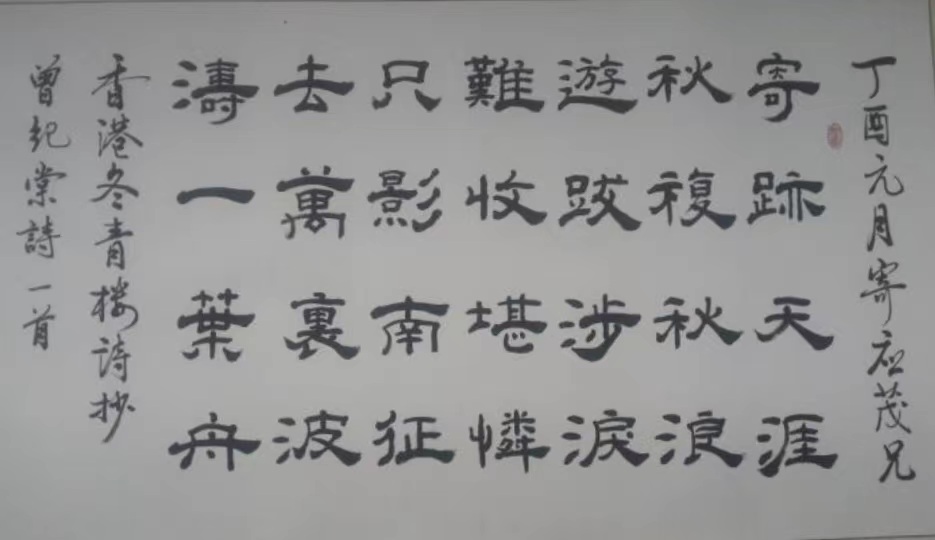 丁酉元月寄应茂兄
寄跡天涯
秋複秋浪
遊跋涉淚
難收堪憐
只影南征
去萬裏波
濤一葉舟
香港冬青楼詩抄
曾纪棠詩一首